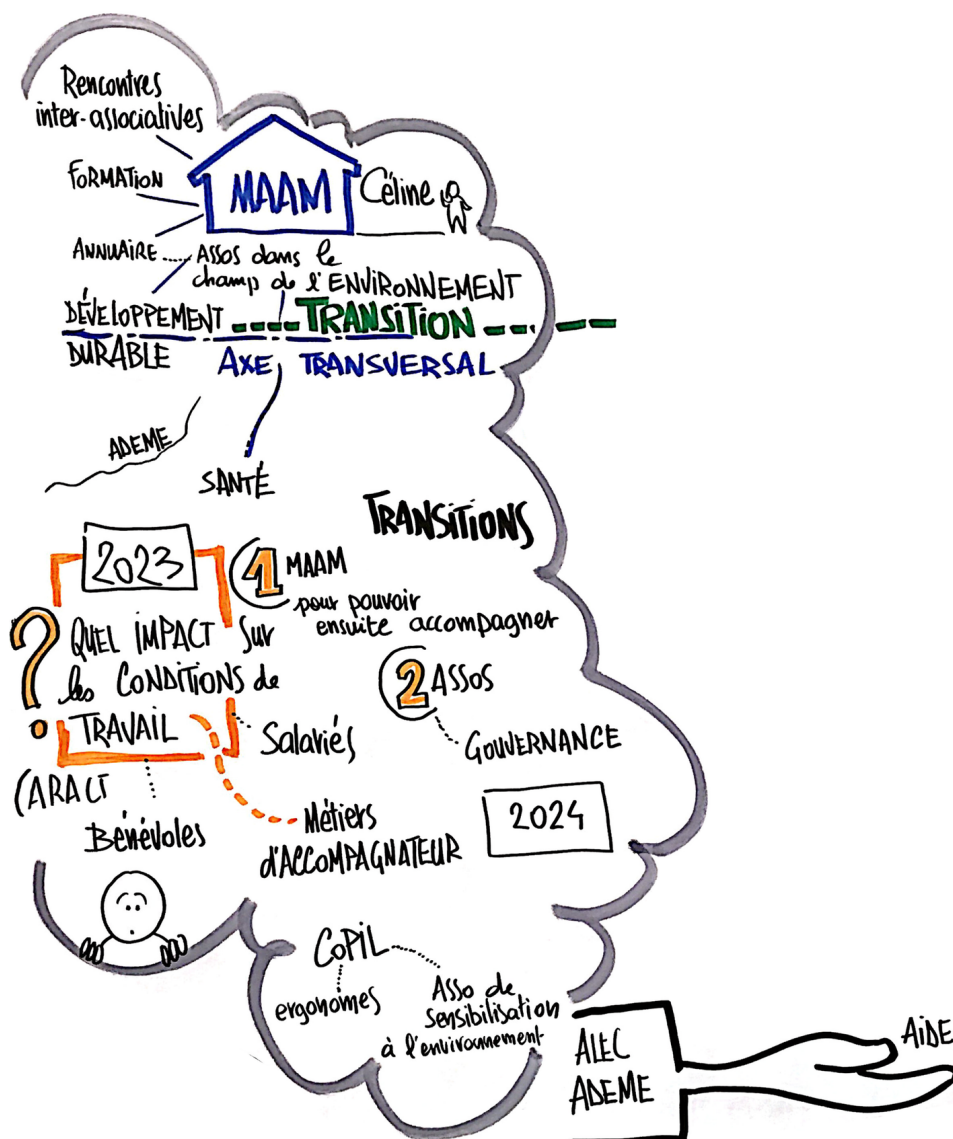 Rencontres
inter-associatives
FORMATION
MAAM
Céline
ANNUAIRE ..... Assos dans le
champ de l'ENVIRONNEMENT
DÉVELOPPEMENT
TRANSITION
DURABLE
AXE TRANSVERSAL
ADEME
SANTÉ
TRANSITIONS
2023
1 MAAM
pour pouvoir
ensuite accompagner
?
QUEL IMPACT sur
les CONDITIONS de
TRAVAIL
2 ASSOS
Salariés
GOUVERNANCE
(ARACT
Bénévoles
Métiers
d'ACCOMPAGNATEUR
2024
CoPIL
ergonomes
Asso de
sensibilisation
à l'environnement
ALEC
ADEME
AIDE